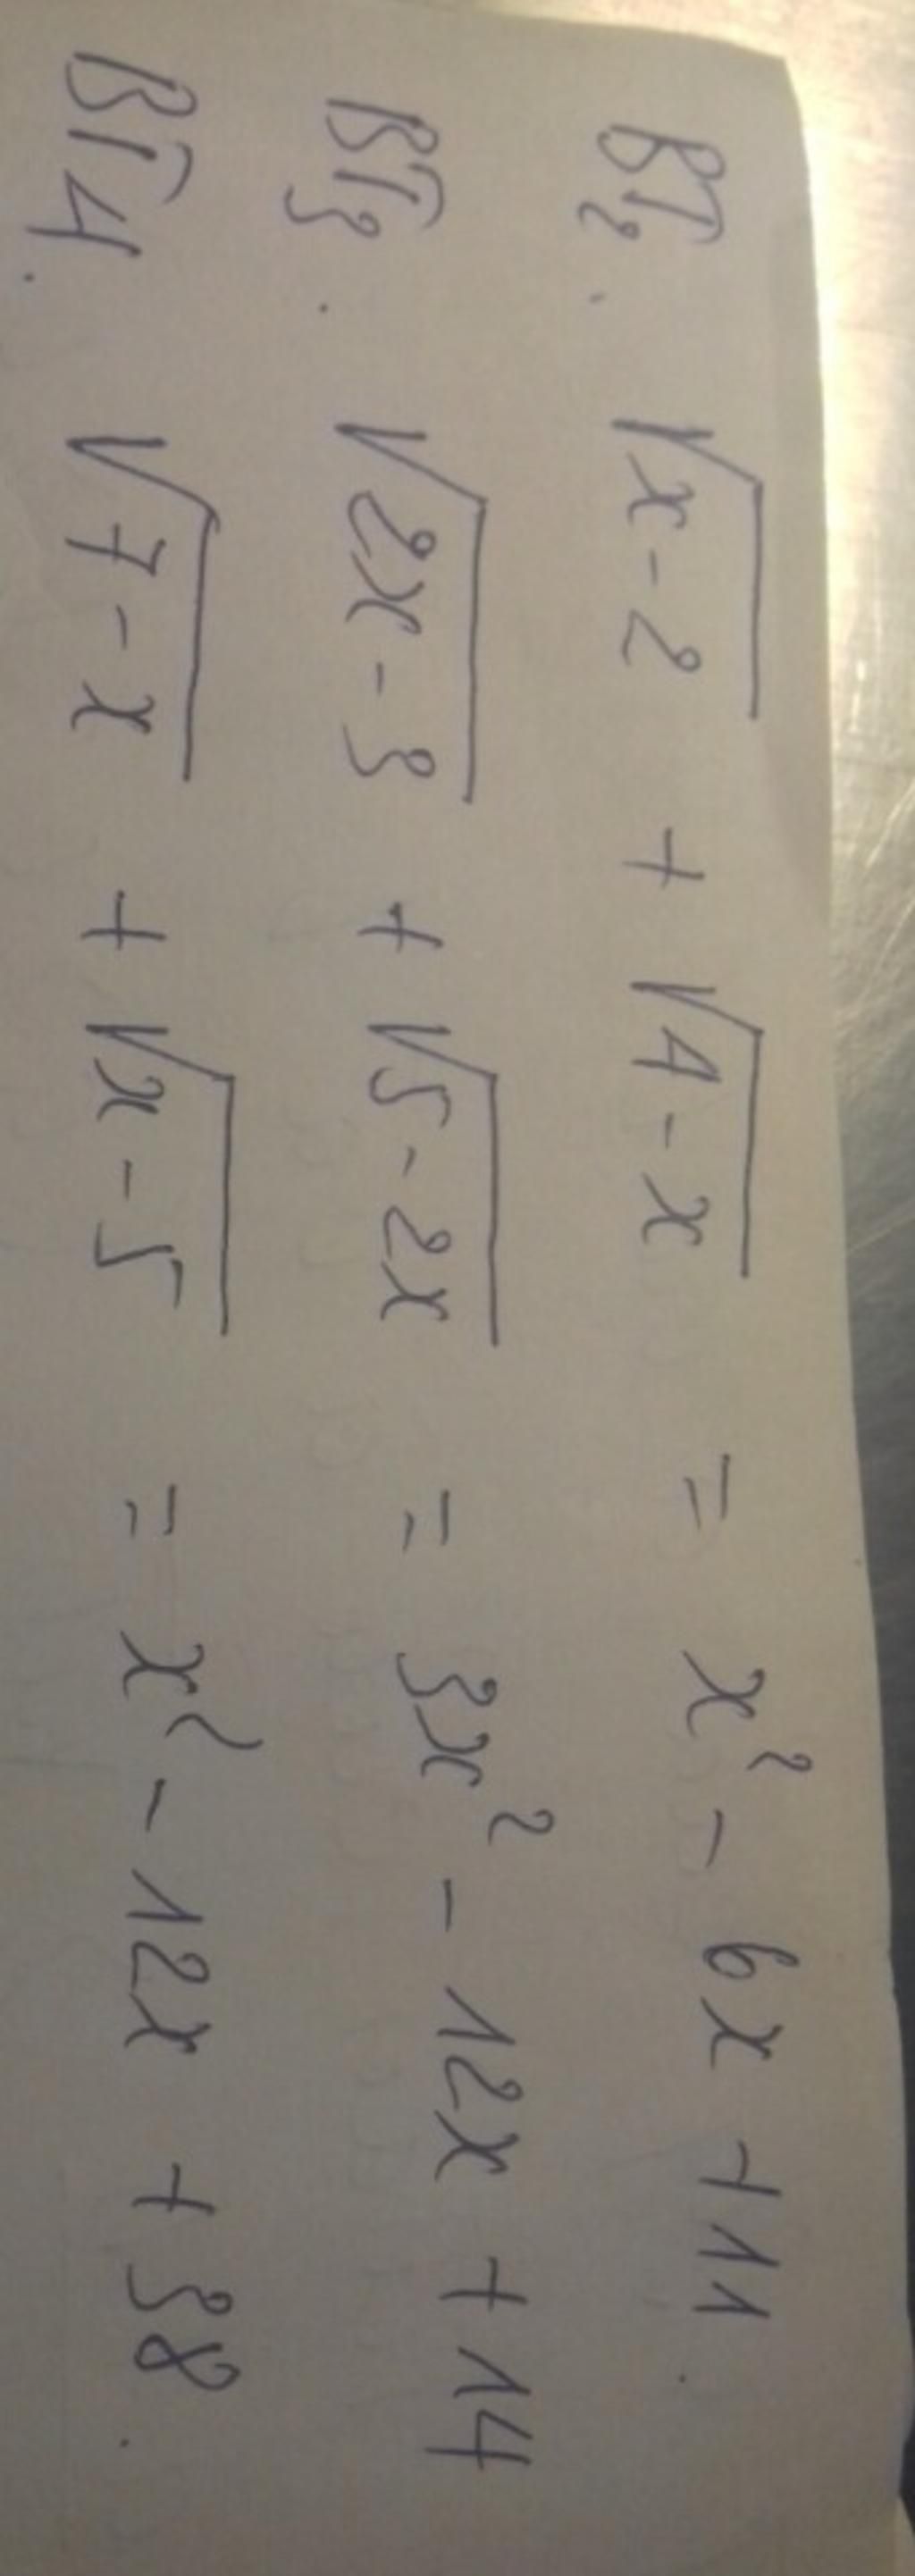 BT2. √x-2 + √4-x = x² - 6x + 11.
BT3. √2x-3 + √5-2x = 3x² - 12x + 14
BT4. √7-x + √x-5 = x² - 12x + 38.